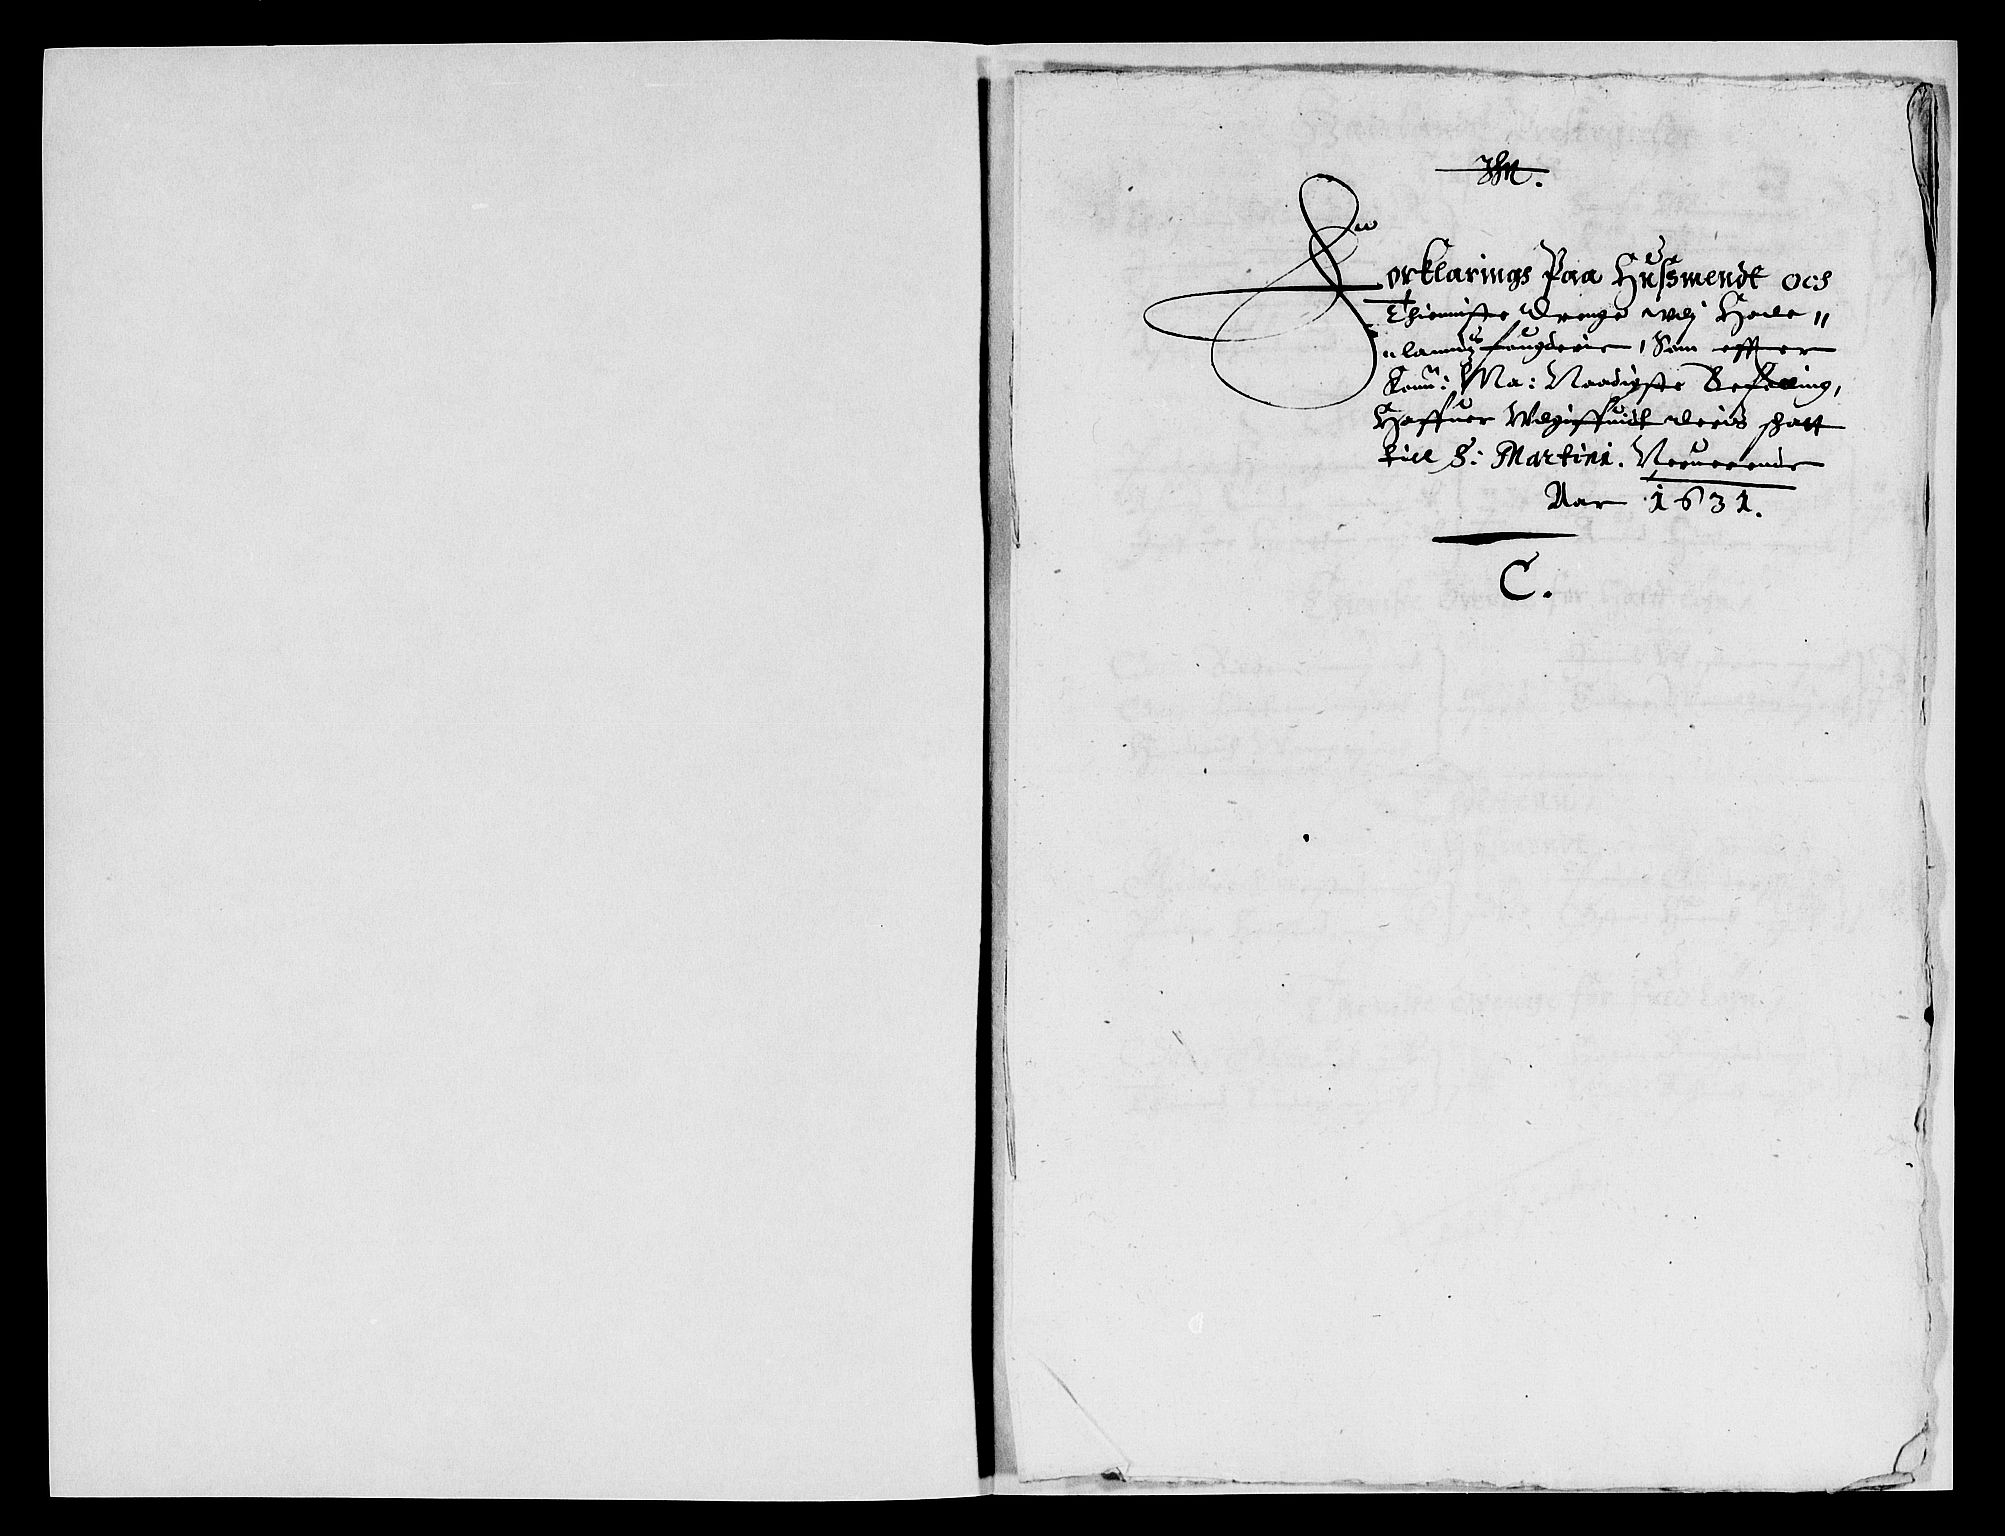 Jhs.
Forklarings Paa Hussmendt och
Thienniste Drenge udj Hede„
„landz fougderie, Som effter
Konn: Ma: Naadigste Befelling,
Haffuer Udgiffuidt deris skatt
till S: Martini. Neruerende
Aar 1631.
C.